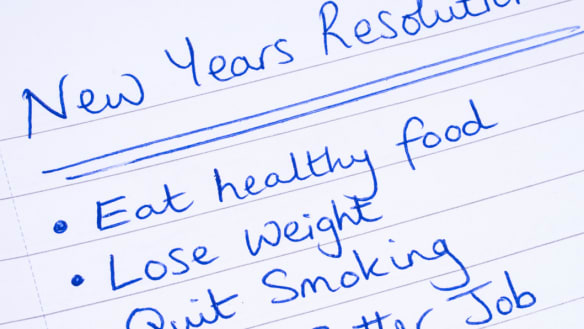 New Years Resolution
• Eat healthy food
• Lose Weight
Quit Smoking
Better Job